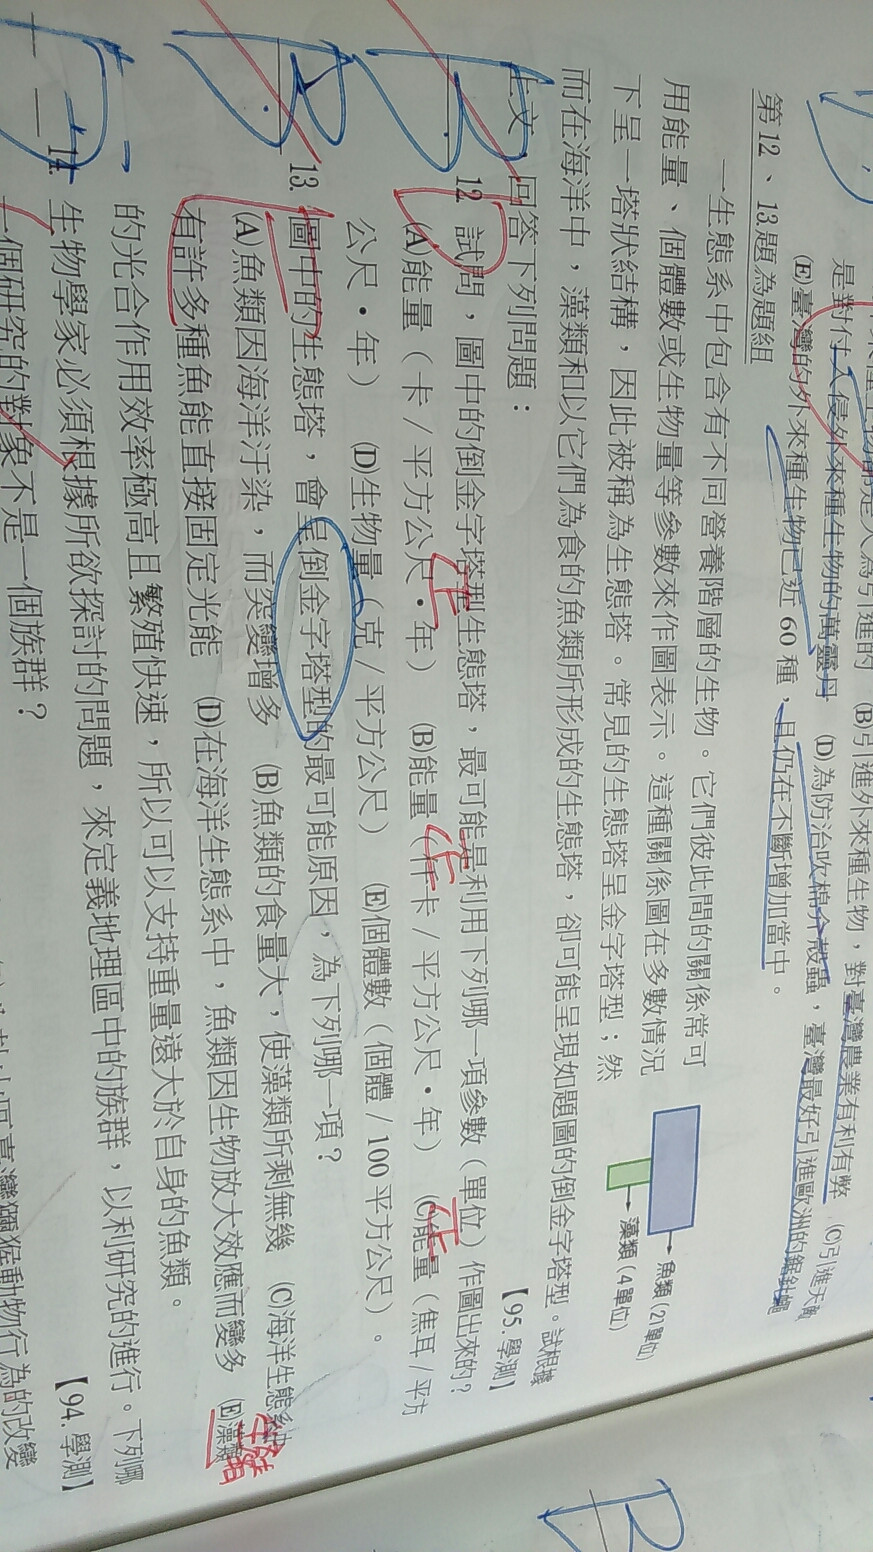 是對付入侵外來種生物的萬靈丹 (D)為防治吹棉介殼蟲，臺灣最好引進歐洲的
(E)臺灣的外來種生物已近 60 種，且仍在不斷增加當中。
第 12、13 題為題組
一生態系中包含有不同營養階層的生物。它們彼此間的關係常可
用能量、個體數或生物量等參數來作圖表示。這種關係圖在多數情況
下呈一塔狀結構，因此被稱為生態塔。常見的生態塔呈金字塔型；然
而在海洋中，藻類和以它們為食的魚類所形成的生態塔，卻可能呈現如題圖的倒金字塔型。試根據
上文，回答下列問題：
【95.學測】
魚類（21單位）
藻類（4單位）
12. 試問，圖中的倒金字塔型生態塔，最可能是利用下列哪一項參數（單位）作圖出來的？
(A)能量（卡／平方公尺·年） (B)能量（仟卡／平方公尺·年） (C)能量（焦耳／平方
公尺·年） (D)生物量（克／平方公尺） (E)個體數（個體／100 平方公尺）。
正
正
正
13. 圖中的生態塔，會呈倒金字塔型的最可能原因，為下列哪一項？
(A)魚類因海洋汙染，而突變增多 (B)魚類的食量大，使藻類所剩無幾 (C)海洋生態系中
有許多種魚能直接固定光能 (D)在海洋生態系中，魚類因生物放大效應而變多 (E)藻類
的光合作用效率極高且繁殖快速，所以可以支持重量遠大於自身的魚類。
14. 生物學家必須根據所欲探討的問題，來定義地理區中的族群，以利研究的進行。下列哪
一個研究的對象不是一個族群？
【94.學測】
B